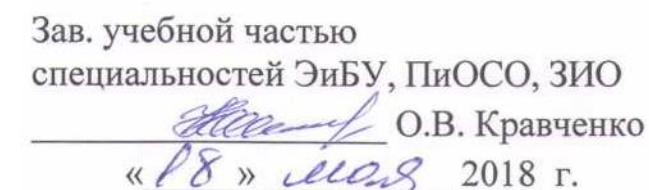 Зав. учебной частью
специальностей ЭиБУ, ПиОСО, ЗИО
О.В. Кравченко
« 18 » мая 2018 г.